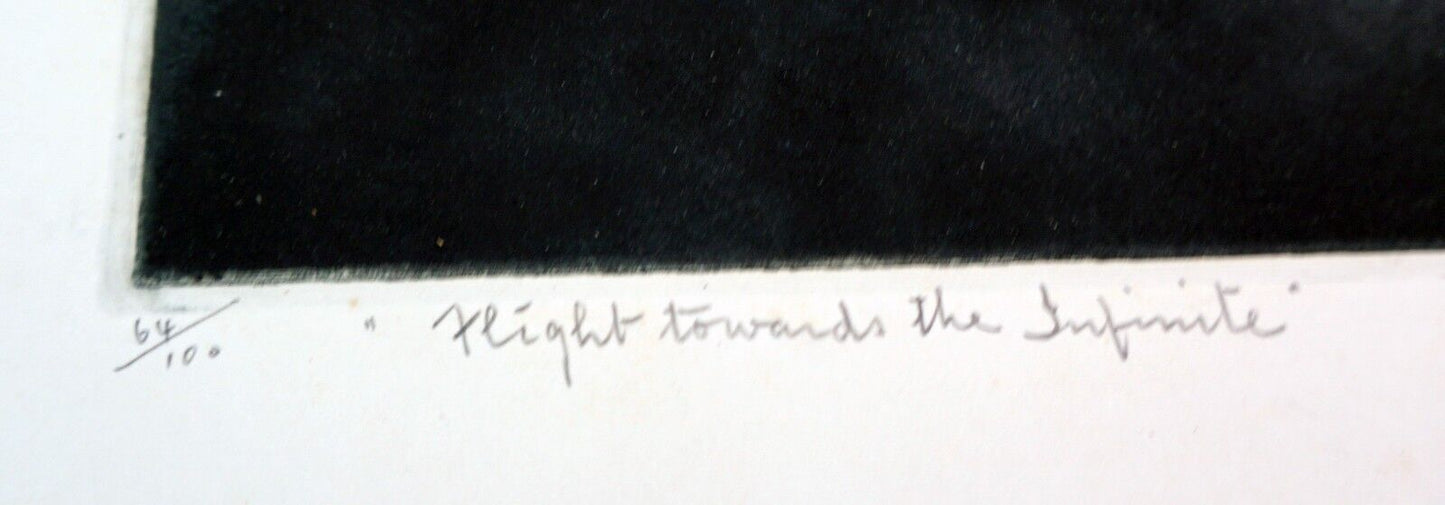 64/100 "Flight towards the Infinite"